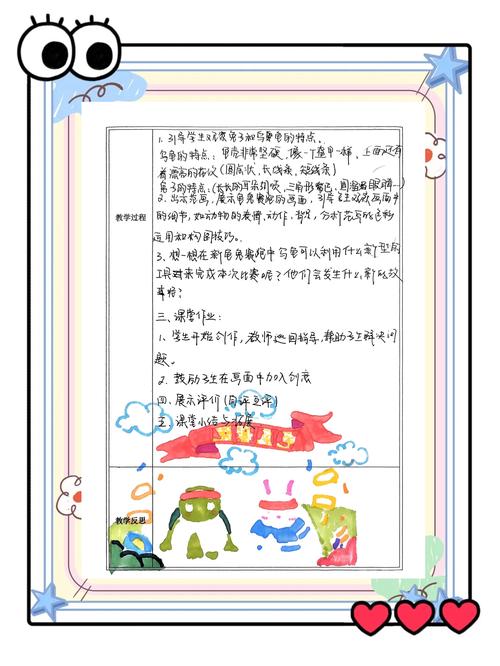 1. 引导学生观察兔子和乌龟的特点。
乌龟的特点：甲壳非常坚硬，像一个盔甲一样，上面还有
着漂亮的花纹(圆点状，长线条，短线条)
兔子的特点：(长长的耳朵，三角形嘴巴，圆溜溜眼睛...)
2. 出示范画，展示龟兔赛跑的画面，引导学生观察画面中
的细节，如动物的表情、动作、背景，分析范画的色彩
运用和构图技巧。
教学过程
3. 想一想在新龟兔赛跑中乌龟可以利用什么新型的
工具来完成本次比赛呢？他们会发生什么新的故
事呢？
三、课堂作业：
1. 学生开始创作，教师巡回指导，帮助学生解决问
题。
2. 鼓励学生在画面中加入创意
四、展示评价(自评互评)
五、课堂小结与拓展
教学反思